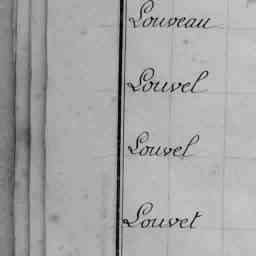 Louveau
Louvel
Louvel
Louvet